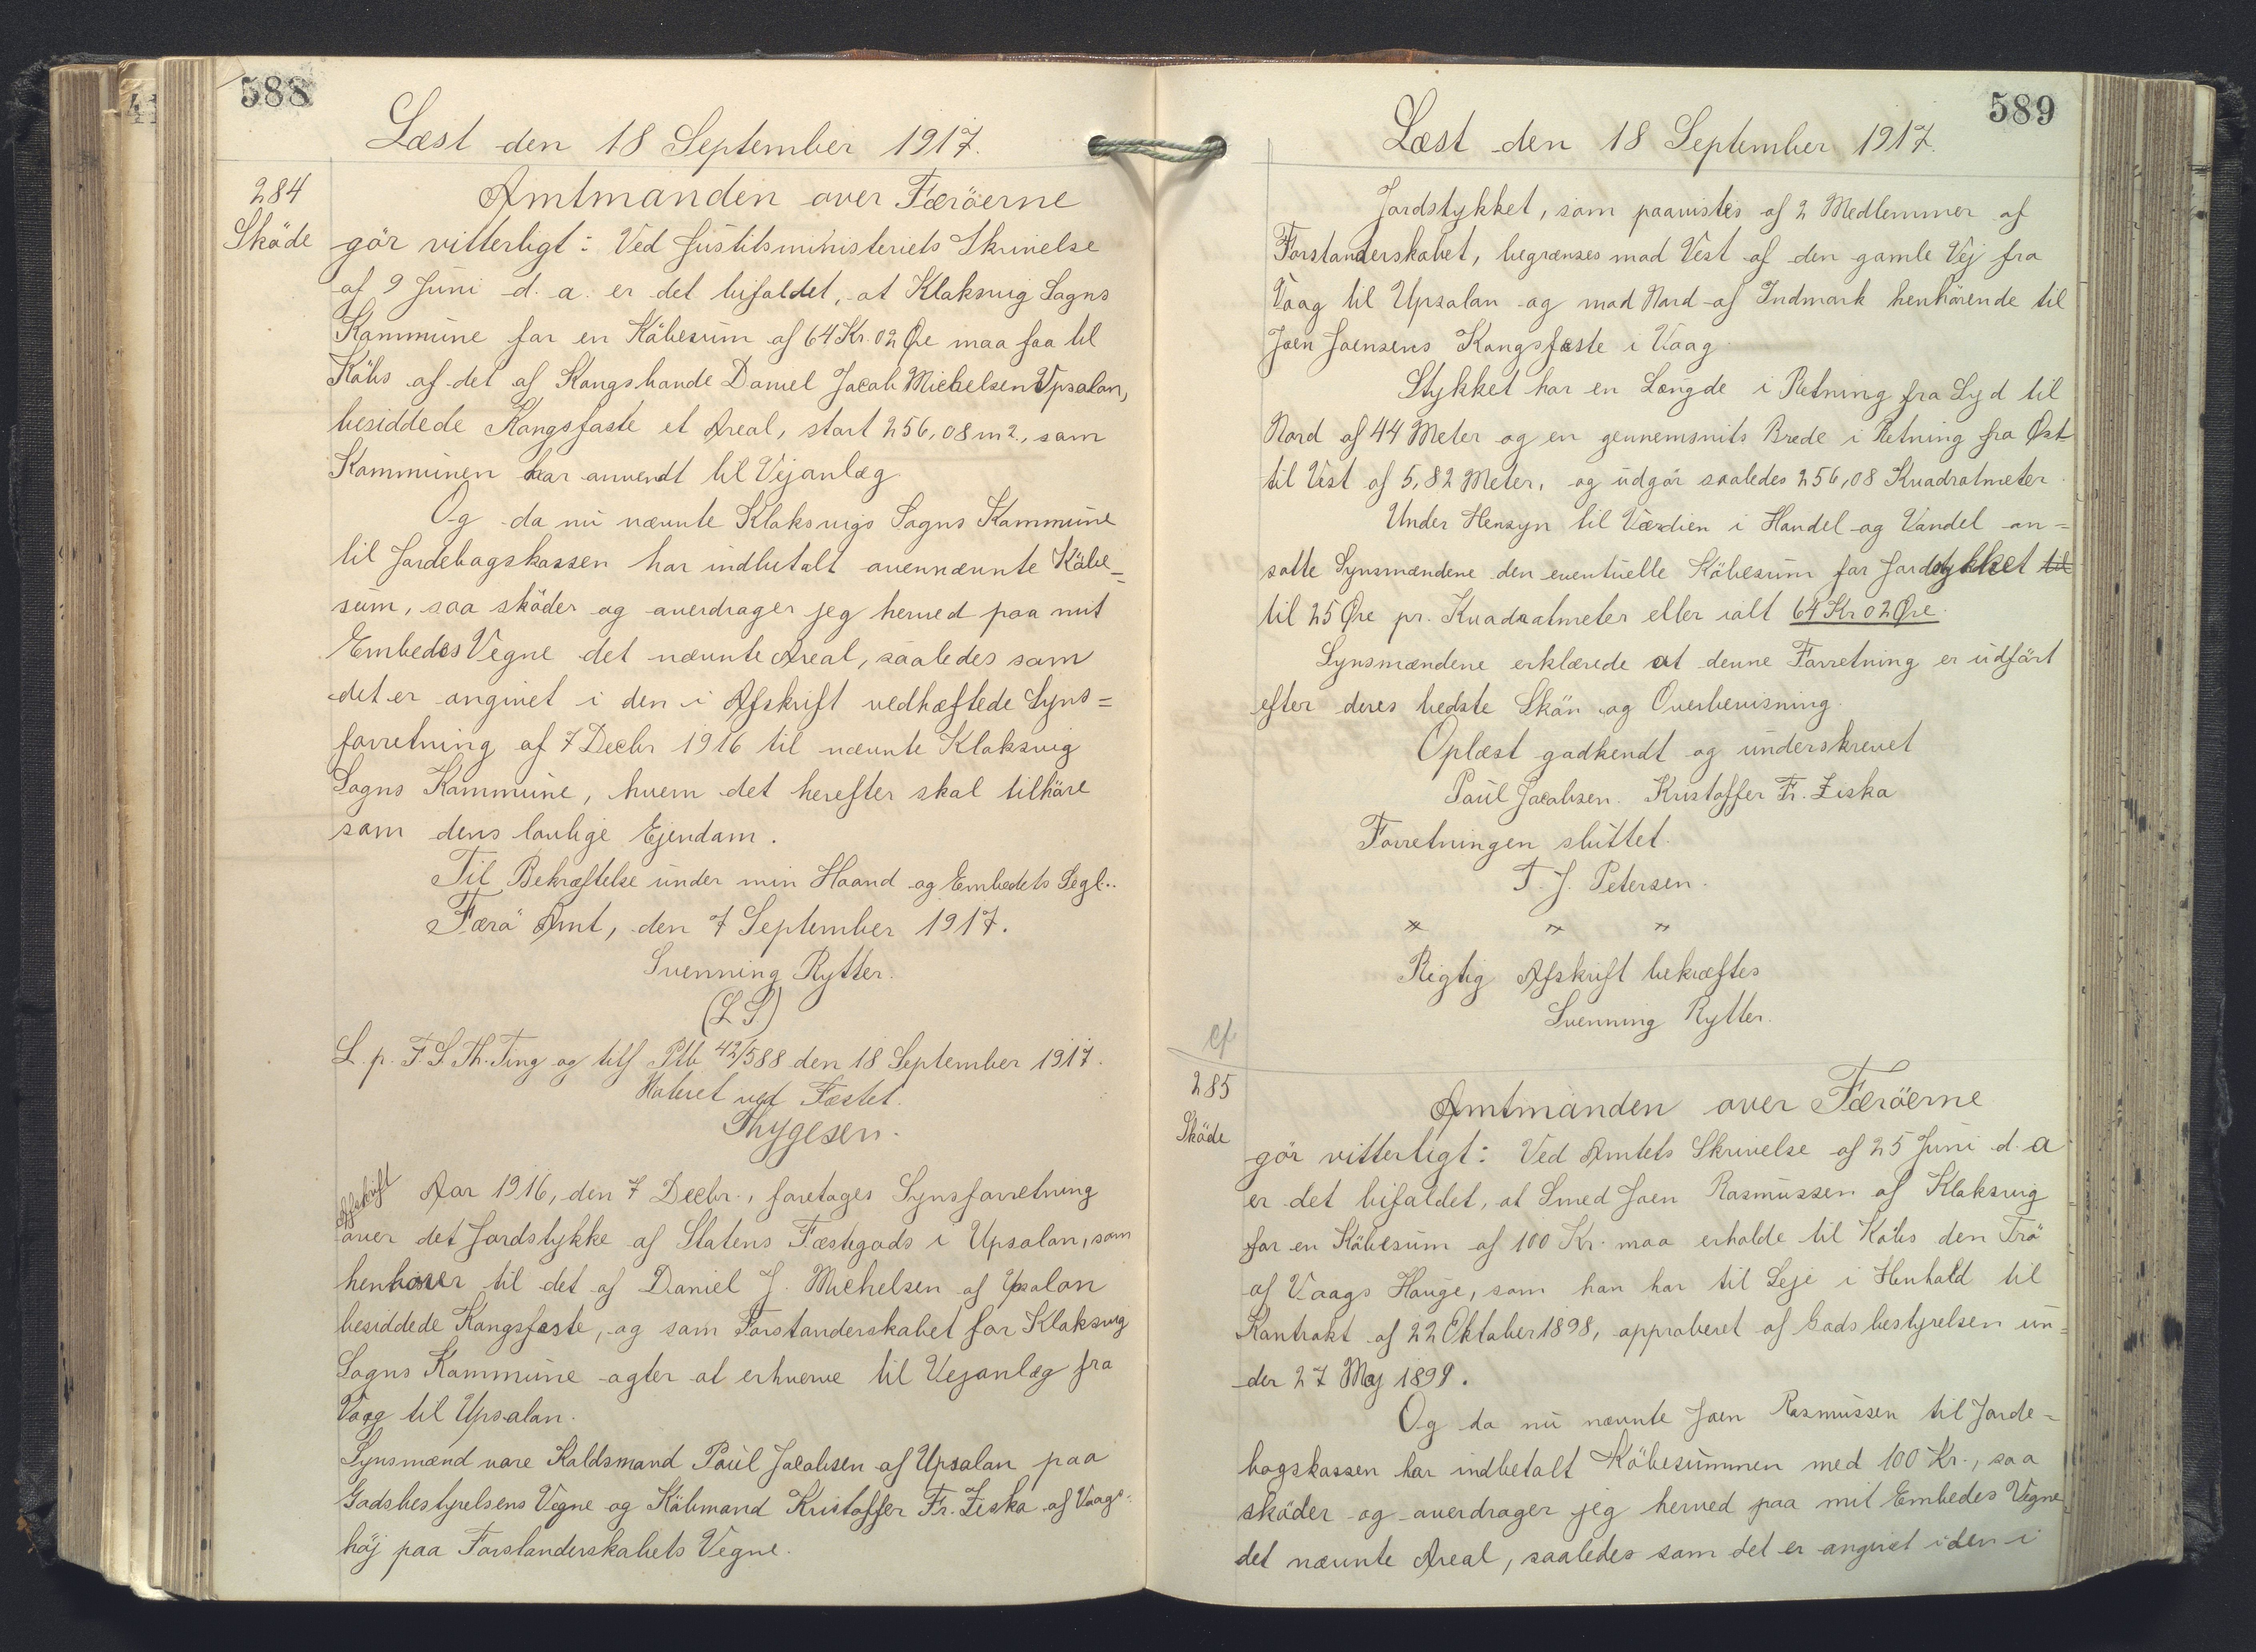 588
Læst den 18 September 1917.
284
Sköde
Amtmanden over Færöerne
gör vitterligt: Ved Justitsministeriets Skrivelse
af 9 Juni d. a. er det bifaldet, at Klaksvig Sogns
Kommune for en Köbesum af 64 Kr. 02 Øre maa faa til
Köbs af det af Kongsbonde Daniel Jacob Michelsen Upsalon,
besiddede Kongsfæste et Areal, stort 256,08 m2., som
Kommunen har anvendt til Vejanlæg
Og da nu nævnte Klaksvigs Sogns Kommune
til Jordebogskassen har indbetalt ovennævnte Köbe=
sum, saa sköder og overdrager jeg herved paa mit
Embedes Vegne det nævnte Areal, saaledes som
det er angivet i den i Afskrift vedhæftede Syns=
forretning af 7 Decbr 1916 til nævnte Klaksvig
Sogns Kommune, hvem det herefter skal tilhöre
som dens lovlige Ejendom.
Til Bekræftelse under min Haand og Embedets Segl..
Færö Amt, den 7 September 1917.
Svenning Rytter.
(L S)
L. p. F. S. Th. Ting og tilf Ptb 42/588 den 18 September 1917.
Noteret ved Fæstet.
Thygesen.
Afskrift
Aar 1916, den 7 Decbr., foretages Synsforretning
over det Jordstykke af Statens Fæstegods i Upsalon, som
henhörer til det af Daniel J. Michelsen af Upsalon
besiddede Kongsfæste, og som Forstanderskabet for Klaksvig
Sogns Kommune agter at erhverve til Vejanlæg fra
Vaag til Upsalon.
Synsmænd vare Koldsmand Poul Jacobsen af Upsalon paa
Godsbestyrelsens Vegne og Köbmand Kristoffer Fr. Ziska af Vaags-
höj paa Forstanderskabets Vegne.
589
Læst den 18 September 1917.
Jordstykket, som paavistes af 2 Medlemmer af
Forstanderskabet, begrænses mod Vest af den gamle Vej fra
Vaag til Upsalon og mod Nord af Indmark henhörende til
Joen Joensens Kongsfæste i Vaag.
Stykket har en Længde i Retning fra Syd til
Nord af 44 Meter og en gennemsnits Brede i Retning fra Øst
til Vest af 5,82 Meter, og udgör saaledes 256,08 Kvadratmeter.
Under Hensyn til Værdien i Handel og Vandel an=
satte Synsmændene den eventuelle Köbesum for Jordstykket til
til 25 Øre pr. Kvadratmeter eller ialt 64 Kr 02 Øre.
Synsmændene erklærede at denne Forretning er udfört
efter deres bedste Skön og Overbevisning.
Oplæst godkendt og underskrevet
Poul Jacobsen. Kristoffer Fr. Ziska
Forretningen sluttet.
T. J. Petersen.
" " "
Rigtig Afskrift bekræftes
Svenning Rytter.
cf.
285
Sköde
Amtmanden over Færöerne
gör vitterligt: Ved Amtets Skrivelse af 25 Juni d. a
er det bifaldet, at Smed Joen Rasmussen af Klaksvig
for en Köbesum af 100 Kr. maa erholde til Köbs den Trö
af Vaags Hauge, som han har til Leje i Henhold til
Kontrakt af 22 Oktober 1898, approberet af Godsbestyrelsen un=
der 27 Maj 1899.
Og da nu nævnte Joen Rasmussen til Jorde=
bogskassen har indbetalt Köbesummen med 100 Kr., saa
sköder og overdrager jeg herved paa mit Embedes Vegne
det nævnte Areal, saaledes som det er angivet i den i